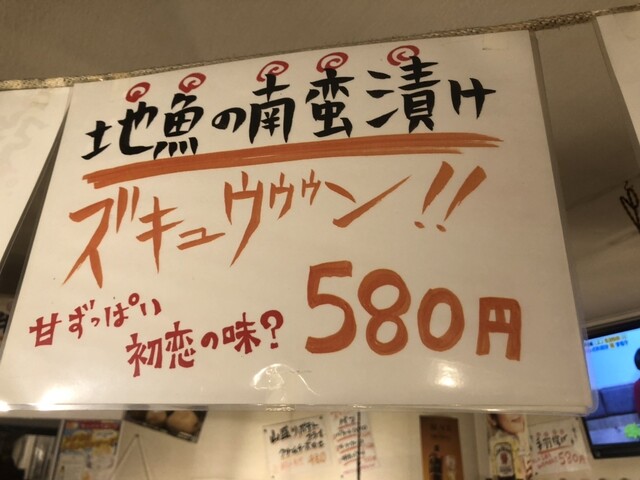 地魚の南蛮漬け
ズキュウゥゥン!!
甘ずっぱい
初恋の味?
580円
580円